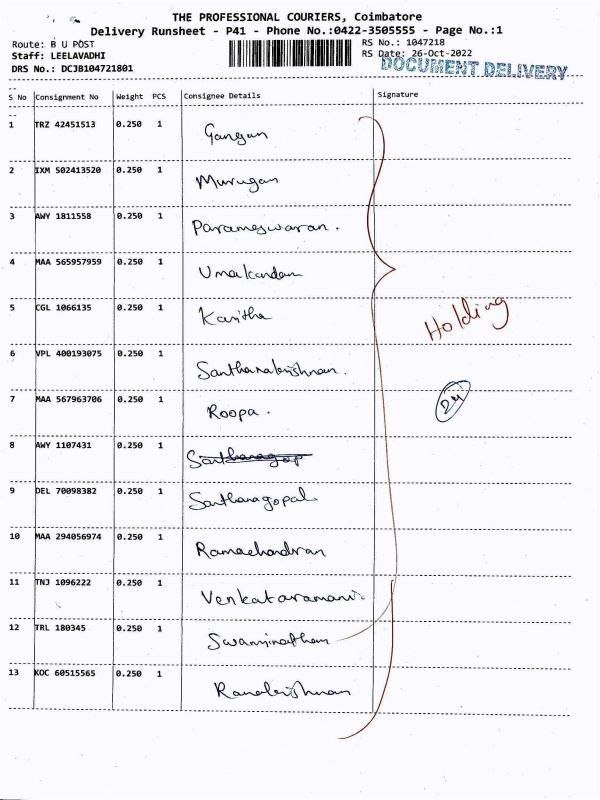 THE PROFESSIONAL COURIERS, Coimbatore
Delivery Runsheet - P41 - Phone No.:0422-3505555 - Page No.:1
Route: B U POST
RS No.: 1047218
Staff: LEELAVADHI
RS Date: 26-Oct-2022
DRS No.: DCJB104721801
DOCUMENT DELIVERY
S No Consignment No Weight PCS Consignee Details Signature
1 TRZ 42451513 0.250 1 Gangun
2 IXM 502413520 0.250 1 Murugan
3 AWY 1811558 0.250 1 Parameswaran.
4 MAA 565957959 0.250 1 Umakandan
5 CGL 1066135 0.250 1 Kavitha
Holding
6 VPL 400193075 0.250 1 Santhanakrishnan.
7 MAA 567963706 0.250 1 Roopa.
24
8 AWY 1107431 0.250 1 Santhanagop
9 DEL 70098382 0.250 1 Santhanagopal
10 MAA 294056974 0.250 1 Ramachandran
11 TNJ 1096222 0.250 1 Venkataramani.
12 TRL 180345 0.250 1 Swaminathan
13 KOC 60515565 0.250 1 Ramakrishnan